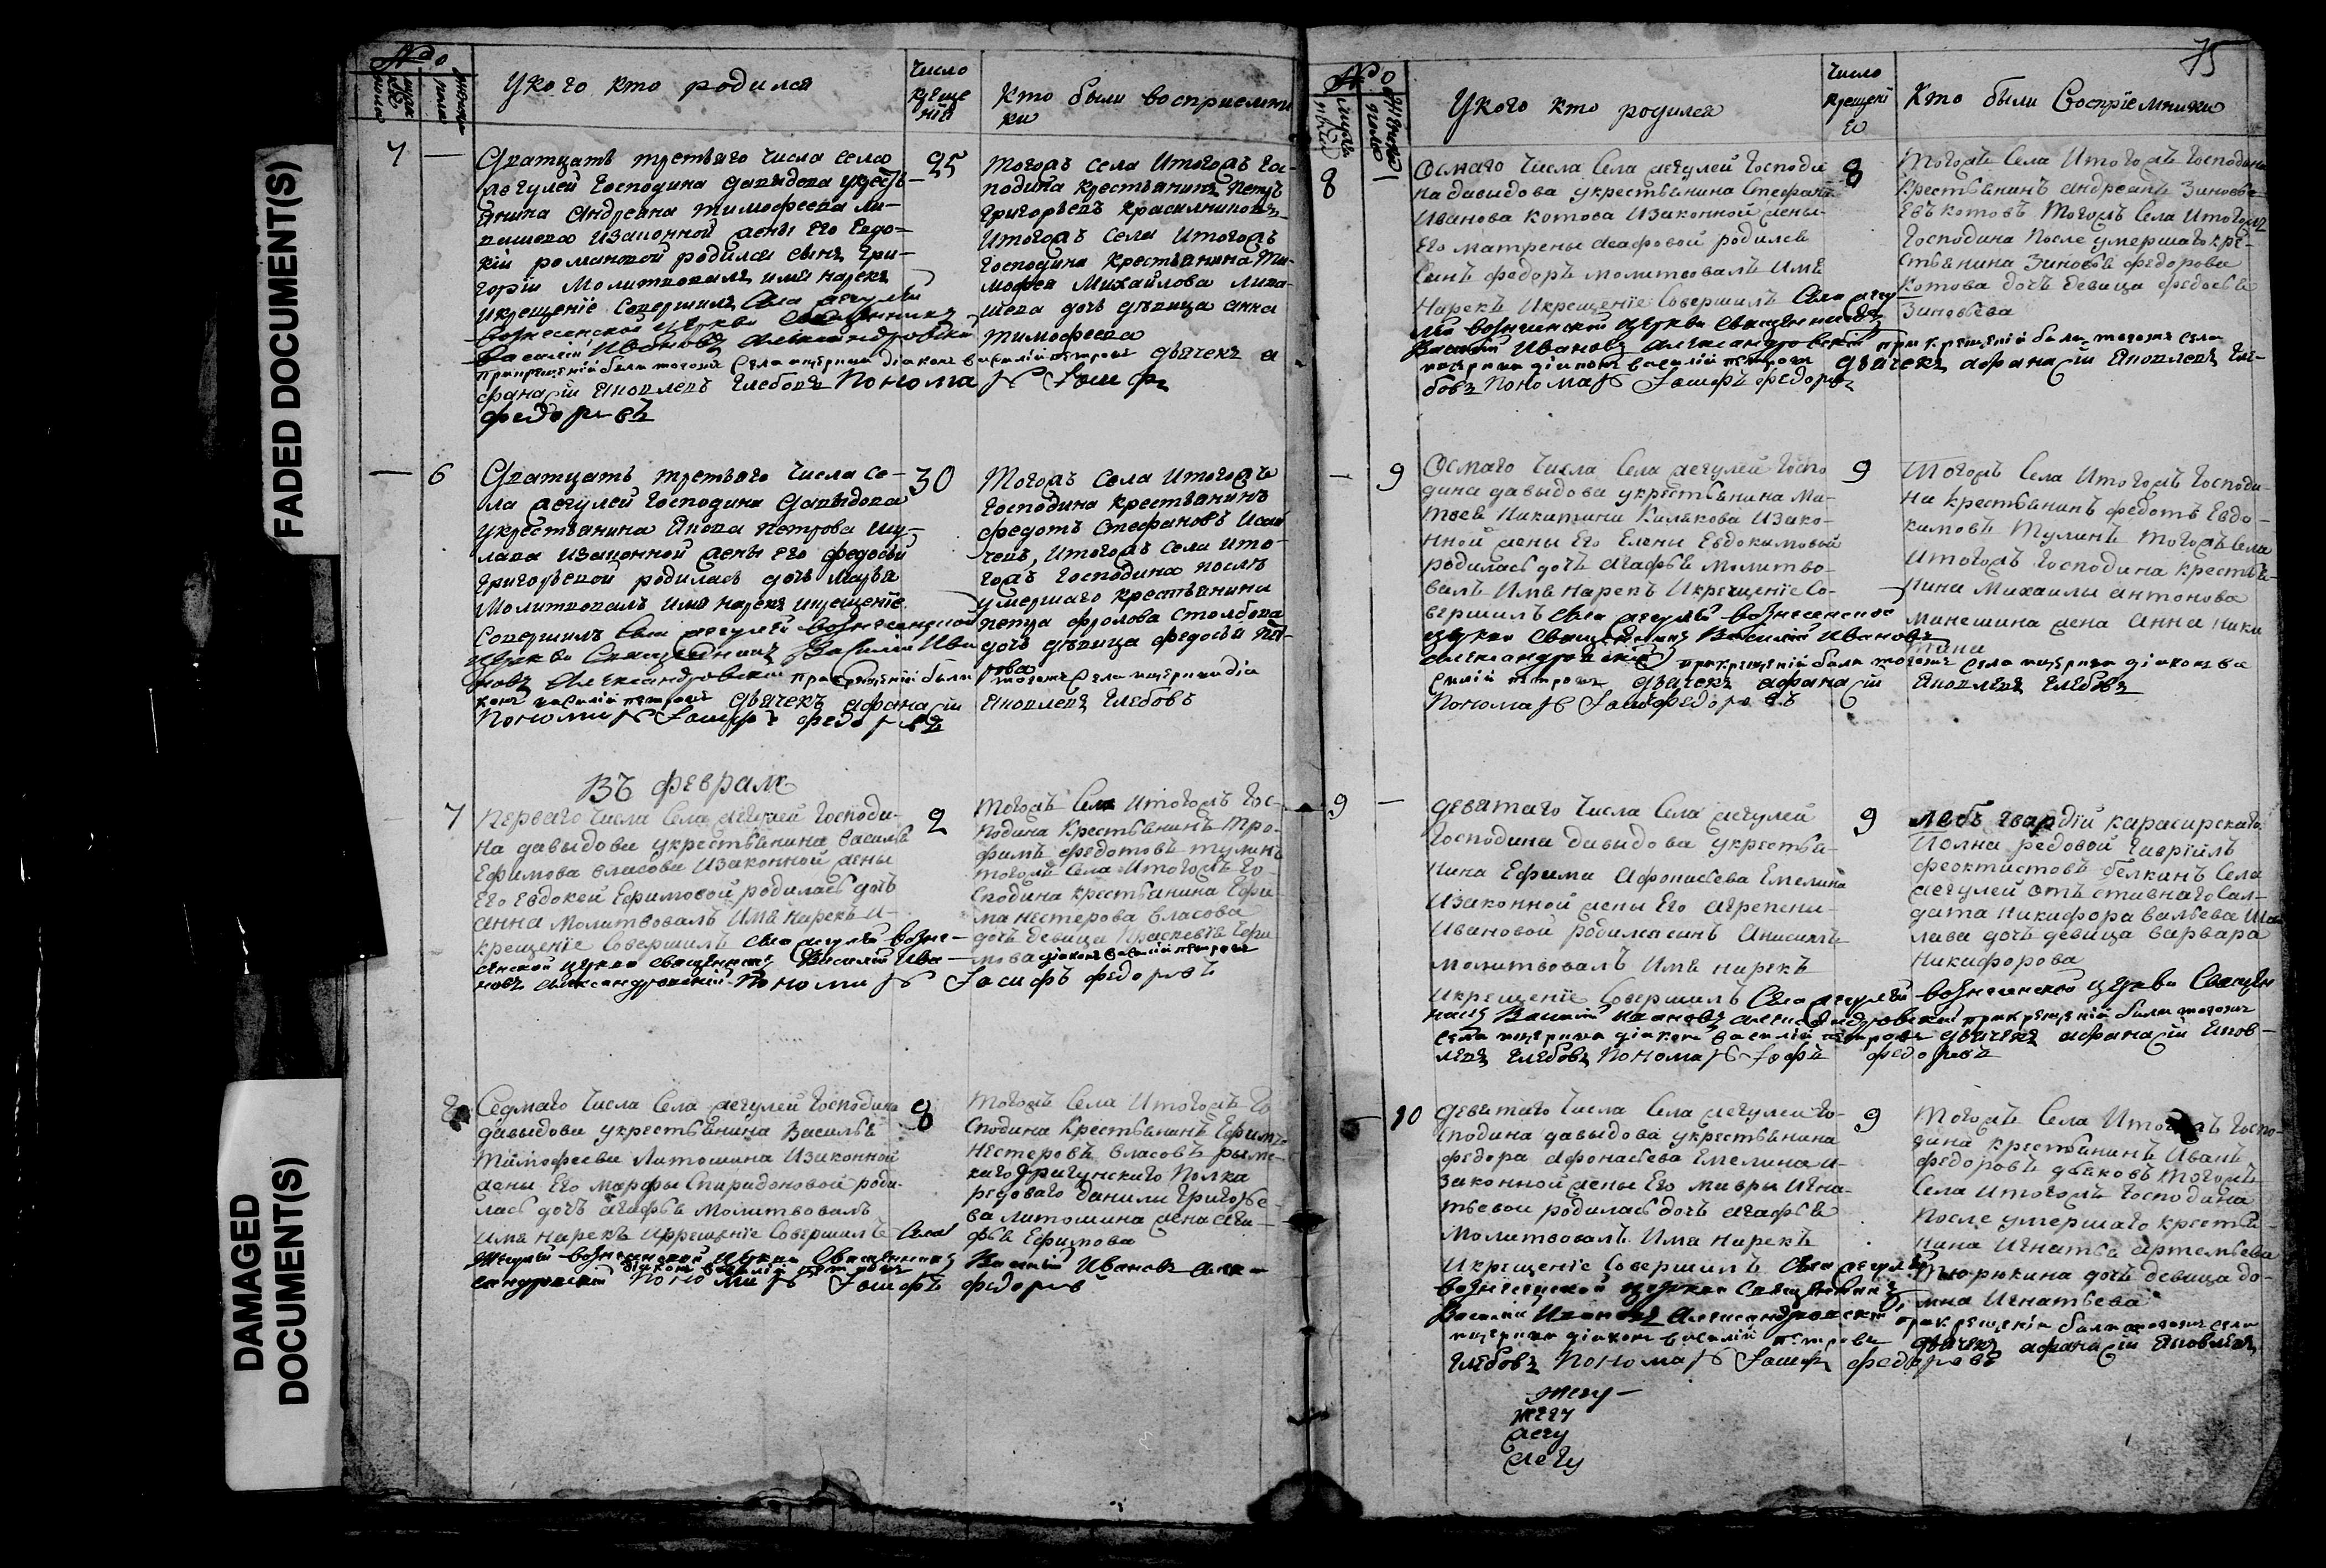 FADED DOCUMENT(S)
DAMAGED
DOCUMENT(S)
№
мужеска
пола
женска
пола
У кого кто родился
Число
креще
нiй
Кто были восприемни
ки
7 —
Дватцать третьяго числа села
Жегулей Господина Давыдова укресть
янина Андреяна Тимофеева Ли-
пашева Изаконной жены Его Евдо-
кiи романовой родился сынъ Гри-
горiй Молитвовалъ имя нарекъ
икрещенiе совершилъ Села Жегулей
вознесенской церкви Священникъ
Василiй Ивановъ Александровскiй
при крещенiй были тогожъ Села дiаконъ василiй петровъ дьячекъ а
фанасiй Яковлевъ Глебовъ Пономарь Iосифъ
федоровъ
25
Тогожъ села Итогожъ Гос-
подина крестьянинъ Петръ
Григорьевъ Красилниковъ,
Итогожъ села Итогожъ
Господина крестьянина Ти-
мофея Михайлова Липа-
шева дочь дѣвица Анна
Тимофеева
— 6
Дватцать третьяго числа се-
ла Жегулей Господина Давыдова
укрестьянина Якова Петрова Шу-
лава Изаконной жены его федосьи
Григорьевой родилась дочь Марья
Молитвовалъ имя нарекъ икрещенiе
Совершилъ Села Жегулей вознесенской
церкви Священникъ Василiй Ива
новъ Александровскiй при крещенiй были тогожъ Села дiа
конъ василiй петровъ дьячекъ афанасiй Яковлевъ Глебовъ
Пономарь Iосифъ федоровъ
30
Тогожъ Села Итогожъ
Господина крестьянинъ
федотъ Стефановъ Исай
чевъ, Итогожъ села Ито-
гожъ Господина послѣ
умершаго крестьянина
Петра фролова Столбова
дочь дѣвица федосья Пет-
рова
Въ февралѣ
7
Перваго числа Села Жегулей Господи-
на давыдова укрестьянина Василья
Ефимова власова Изаконной жены
Его Евдокеи Ефимовой родилась дочь
Анна Молитвовалъ Имя Нарекъ И-
крещенiе Совершилъ Села Жегулей возне-
сенской церкви священникъ Василiй Ива-
новъ Александровскiй Пономарь Iосифъ федоровъ
2
Тогожъ Села Итогожъ Гос-
подина Крестьянинъ Тро-
фимъ федотовъ тулинъ
Тогожъ Села Итогожъ Го-
сподина крестьянина Ефи-
ма Нестерова власова
дочь девица Праскевья Ефи
мова дiаконъ василiй петровъ
8
Седмаго Числа Села Жегулей Господина
давыдова укрестьянина Василья
Тимофеева Литошина Изаконной
жены Его Марфы Спиридоновой роди-
лась дочь Агафья Молитвовалъ
Имя Нарекъ Икрещенiе Совершилъ Села
Жегулей вознесенской церкви Священникъ Василiй Ивановъ Алек-
сандровскiй дiаконъ василiй петровъ Пономарь Iосифъ федоровъ
8
Тогожъ Села Итогожъ Го
сподина Крестьянинъ Ефимъ
Нестеровъ власовъ
Полка
редоваго Данилы Григорье-
ва Литошина жена Ага-
фья Ефимова
75
№
мужеска
пола
женска
пола
У кого кто родился
Число
крещенi
я
Кто были Воспрiемники
8 —
Осмаго Числа Села Жегулей Господи
на давыдова укрестьянина Стефана
Иванова котова Изаконной жены
Его Матрены Асафовой родился
Сынъ федоръ Молитвовалъ Имя
Нарекъ Икрещенiе Совершилъ Села Жегу-
лей вознесенской церкви священникъ
Василiй Ивановъ Александровскiй при крещенiй были тогожъ села
дiаконъ василiй петровъ дьячекъ афанасiй Яковлевъ Гле-
бовъ Пономарь Iосифъ федоровъ
8
Тогожъ Села Итогожъ Господина
Крестьянинъ Андреянъ Зиновье-
въ котовъ Тогожъ Села Итогожъ
Господина После умершаго кре-
стьянина Зиновья федорова
Котова дочь девица федосья
Зиновьева
— 9
Осмаго Числа Села Жегулей Госпо
дина давыдова укрестьянина Ма-
твея Никитина Килякова Изако-
нной жены Его Елены Евдокимовой
родилась дочь Агафья Молитво-
валъ Имя Нарекъ Икрещенiе Со-
вершилъ Села Жегулей вознесенской
церкви Священникъ Василiй Ивановъ
Александровскiй при крещенiй были тогожъ Села дiаконъ ва
силiй петровъ дьячекъ афанасiй Яковлевъ Глебовъ
Пономарь Iосифъ федоровъ
9
Тогожъ Села Итогожъ Господи-
на крестьянинъ федотъ Евдо-
кимовъ Тулинъ Тогожъ Села
Итогожъ Господина крестья-
нина Михаилы Антонова
Манешина жена Анна Ники
тина
9 —
Девятаго Числа Села Жегулей
Господина давыдова укрестья-
нина Ефима Афонасьева Емелина
Изаконной жены Его Агрепены
Ивановой родился сынъ Анисимъ
Молитвовалъ Имя Нарекъ
Икрещенiе Совершилъ Села Жегулей вознесенской церкви Священ
никъ Василiй Ивановъ Александровскiй при крещенiй были тогожъ
села дiаконъ василiй петровъ дьячекъ афанасiй Яков-
левъ Глебовъ Пономарь Iосифъ федоровъ
9
Лебъ Гвардiи карасирскаго
Полка редовой Гаврiилъ
феоктистовъ белкинъ Села
Жегулей отъ ставнаго Сал-
дата Никифора Васьева Шу
лава дочь девица варвара
Никифорова
— 10
Девятаго Числа Села Жегулей Го-
сподина давыдова укрестьянина
федора Афонасьева Емелина И-
законной жены Его Мавры Игна-
тьевой родилась дочь Агафья
Молитвовалъ Имя Нарекъ
Икрещенiе Совершилъ Села Жегулей
вознесенской церкви Священникъ
Василiй Ивановъ Александровскiй при крещенiи были тогожъ села
дiаконъ василiй петровъ дьячекъ афанасiй Яковлевъ
Глебовъ Пономарь Iосифъ федоровъ
9
Тогожъ Села Итогожъ Госпо-
дина крестьянинъ Иванъ
федоровъ дьяковъ Тогожъ
Села Итогожъ Господина
После умершаго крестья-
нина Игнатья Артемьева
Тюрюкина дочь девица до-
мна Игнатьева
Жегу—
Жегу
Жегу
Жегу